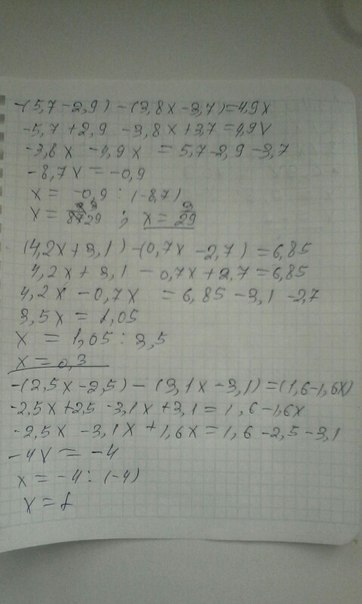 -(5,7-2,9)-(3,8x-3,7)=4,9x
-5,7+2,9 -3,8x+3,7=4,9x
-3,8x -4,9x = 5,7-2,9-3,7
-8,7x = -0,9
x = -0,9 : (-8,7)
x = ; x = 3/29
(4,2x+3,1)-(0,7x-2,7)=6,85
4,2x+3,1-0,7x+2,7=6,85
4,2x-0,7x =6,85-3,1-2,7
3,5x = 1,05
x = 1,05:3,5
x=0,3
-(2,5x-2,5)-(3,1x-3,1)=(1,6-1,6x)
-2,5x+2,5-3,1x+3,1=1,6-1,6x
-2,5x -3,1x+1,6x=1,6-2,5-3,1
-4x = -4
x = -4:(-4)
x = 1